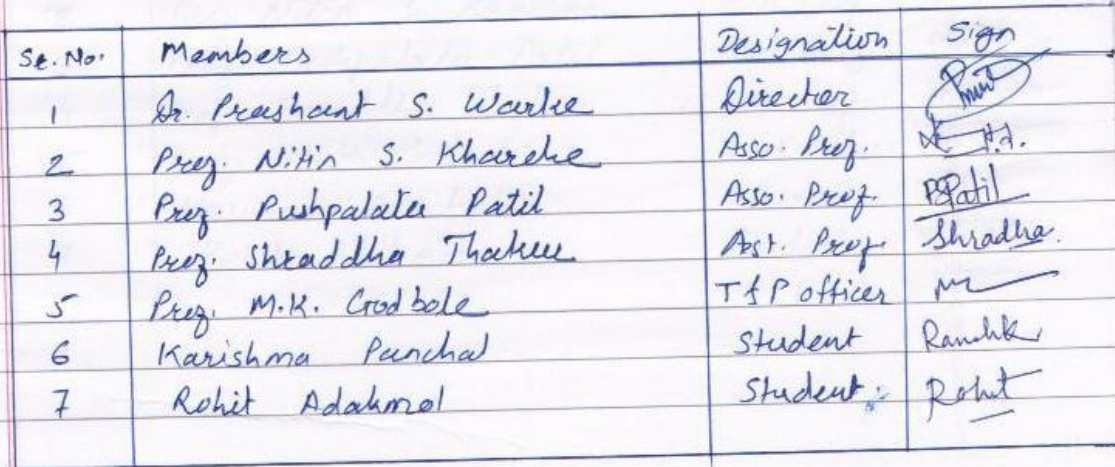 Sr. No. Members Designation Sign
1 Dr. Prashant S. Warke Director
2 Prof. Nitin S. Kharche Asso. Prof.
3 Prof. Pushpalata Patil Asso. Prof. PSPatil
4 Prof. Shraddha Thakur Asst. Prof Shradha
5 Prof. M.K. Godbole T & P officer
6 Karishma Panchal Student
7 Rohit Adakmol Student Rohit